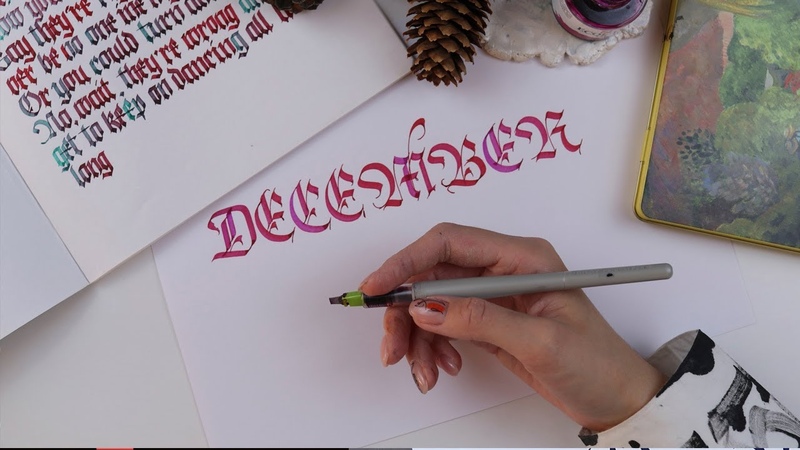 Say they're wrong
be no one
Or you could turn
No wait, they're wrong
get to keep on dancing all
long
DECEMBER